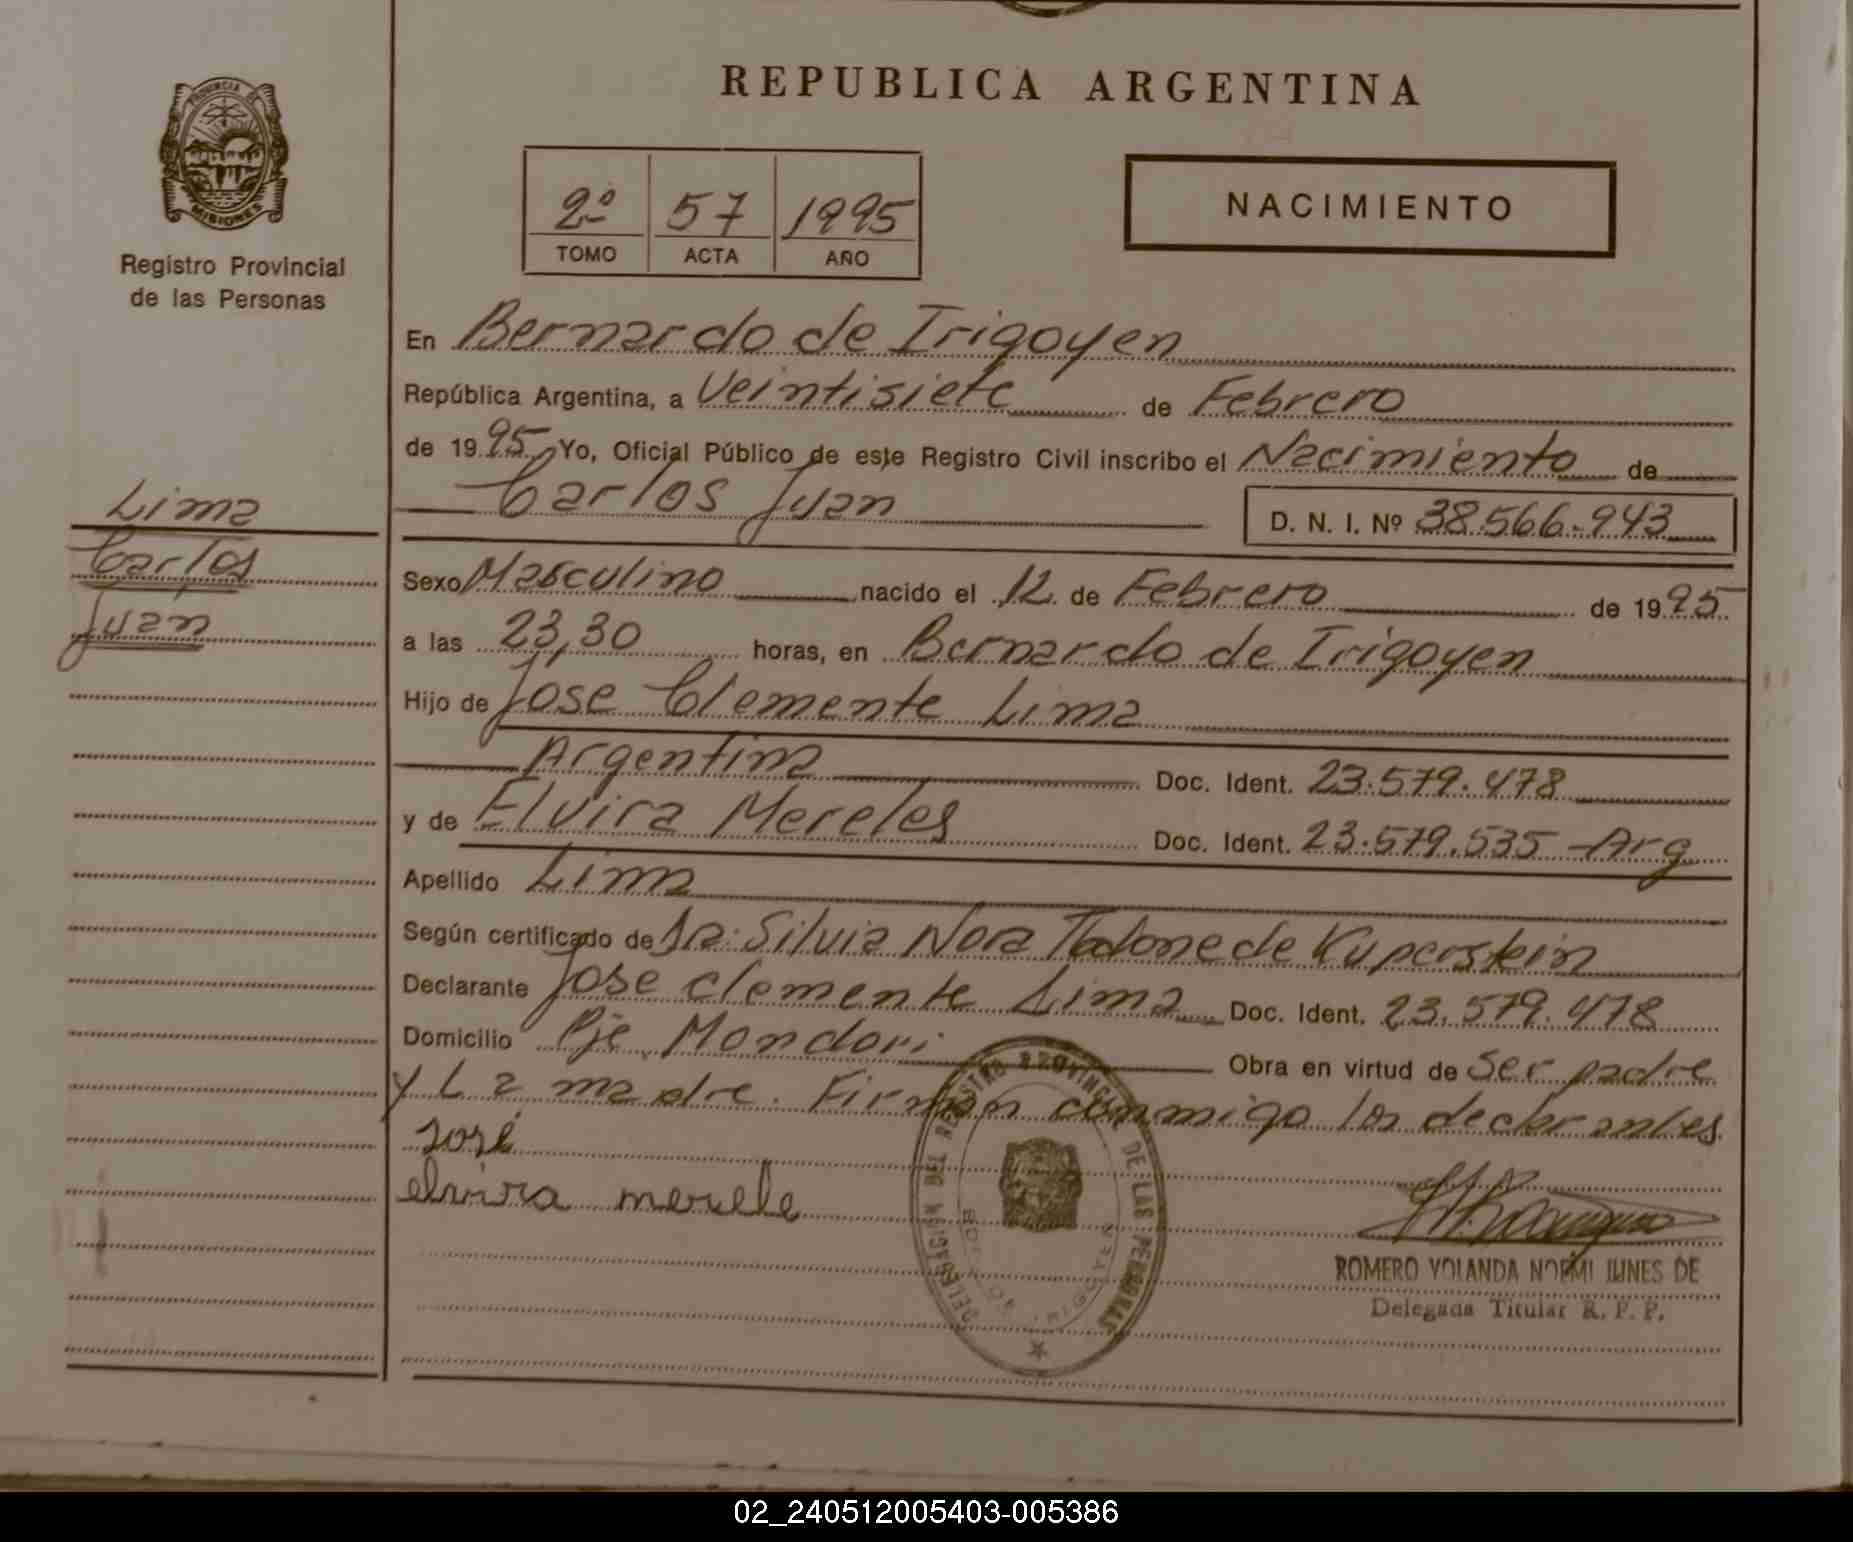 REPUBLICA ARGENTINA
PROVINCIA DE
MISIONES
Registro Provincial
de las Personas
2º 57 1995
TOMO ACTA AÑO
NACIMIENTO
En Bernardo de Irigoyen
República Argentina, a Veintisiete de Febrero
de 1995 Yo, Oficial Público de este Registro Civil inscribo el Nacimiento de
Carlos Juan D. N. I. Nº 38.566.943
Lima
Carlos
Juan
Sexo Masculino nacido el 12 de Febrero de 1995
a las 23,30 horas, en Bernardo de Irigoyen
Hijo de Jose Clemente Lima
Argentina Doc. Ident. 23.579.478
y de Elvira Mereles Doc. Ident. 23.579.535 Arg
Apellido Lima
Según certificado de Dra. Silvia Nora de Kuperstein
Declarante Jose Clemente Lima Doc. Ident. 23.579.478
Domicilio Pje Mondori Obra en virtud de Ser padre
y La madre. Firman conmigo los declarantes
José
elvira merele
DELEGACIÓN DEL REGISTRO PROVINCIAL DE LAS PERSONAS
BDO. DE IRIGOYEN
ROMERO YOLANDA NOEMI DE
Delegada Titular R. P. P.
02_240512005403-005386